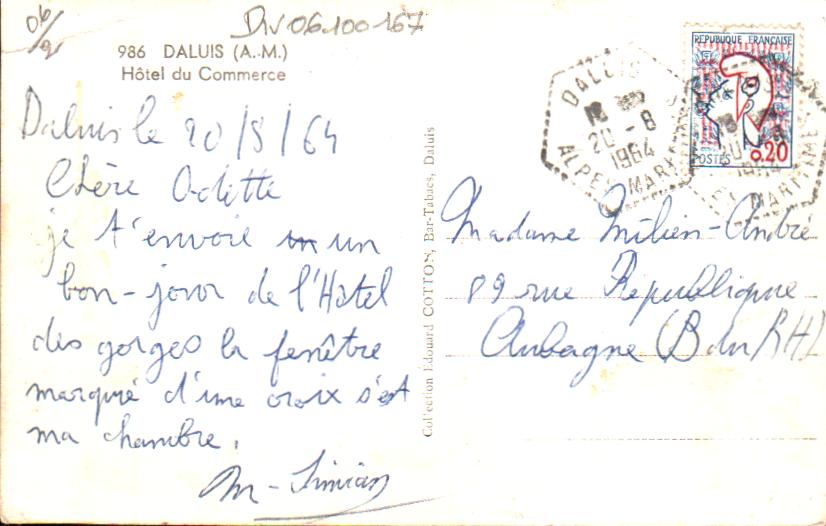 06/a
Div 06.100167
986 DALUIS (A.-M.)
Hôtel du Commerce
Daluis le 20/8/64
Chère Odette
je t'envoie un
bon-jour de l'Hotel
des gorges la fenêtre
marqué d'une croix s'est
ma chambre.
M-Simian
Collection Edouard COTTON, Bar-Tabacs, Daluis
DALUIS
18
20 - 8
1964
ALPES MARITIMES
REPUBLIQUE FRANÇAISE
POSTES 0,20
1964
MARITIMES
Madame Milien-André
89 rue République
Aubagne (B du RH)